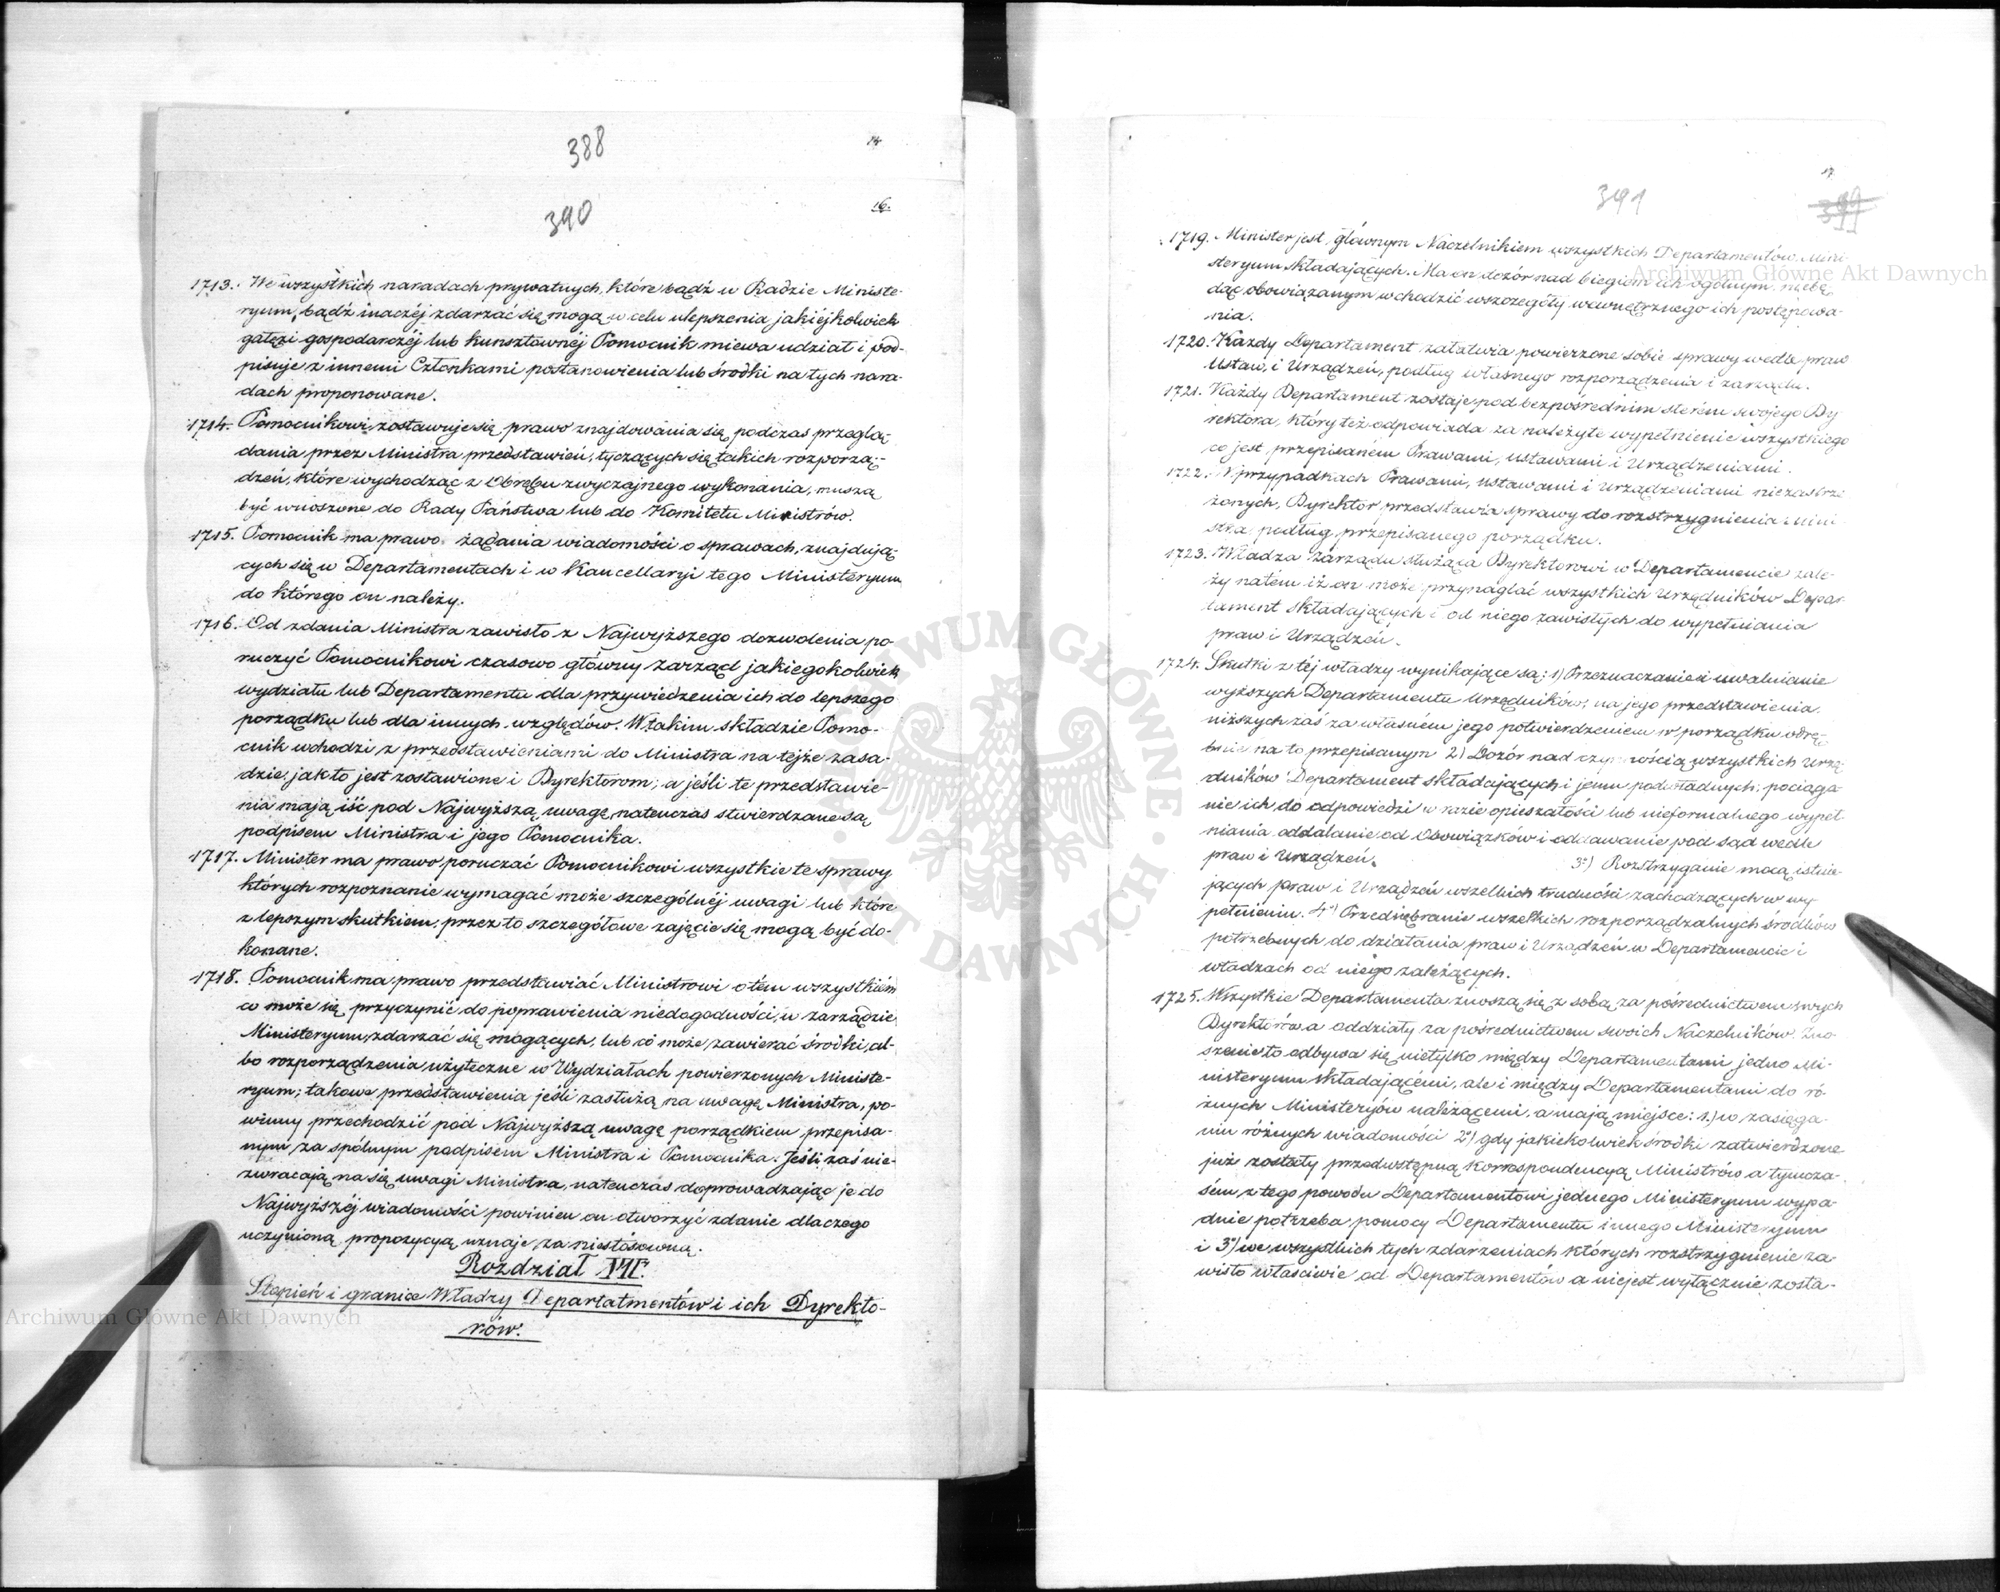 388
14
390
16.
1713. We wszystkich naradach prywatnych, które bądź w Radzie Ministe-
ryum, bądź inaczéj zdarzać się mogą w celu ulepszenia jakiéjkolwiek
gałęzi gospodarczéj lub kunsztownéj Pomocnik miewa udział i pod-
pisuje z innemi Członkami postanowienia lub środki na tych nara-
dach proponowane.
1714. Pomocnikowi zostawuje się prawo znajdowania się podczas przeglą-
dania przez Ministra przedstawień, tyczących się takich rozporzą-
dzeń, które wychodząc z Obrębu zwyczajnego wykonania, muszą
być wnoszone do Rady Państwa lub do Komitetu Ministrów.
1715. Pomocnik ma prawo żądania wiadomości o sprawach, znajdują-
cych się w Departamentach i w Kancellaryi tego Ministeryum
do którego on należy.
1716. Od zdania Ministra zawisło z Najwyższego dozwolenia po-
ruczyć Pomocnikowi czasowo główny zarząd jakiegokolwiek
wydziału lub Departamentu dla przywiedzenia ich do lepszego
porządku lub dla innych względów. W takim składzie Pomo-
cnik wchodzi z przedstawieniami do Ministra na tejże zasa-
dzie, jak to jest zostawione i Dyrektorom; a jeśli te przedstawie-
nia mają iść pod Najwyższą uwagę, natenczas stwierdzane są
podpisem Ministra i jego Pomocnika.
1717. Minister ma prawo poruczać Pomocnikowi wszystkie te sprawy
których rozpoznanie wymagać może szczególnéj uwagi lub które
z lepszym skutkiem przez to szczegółowe zajęcie się mogą być do-
konane.
1718. Pomocnik ma prawo przedstawiać Ministrowi o tém wszystkiém
co może się przyczynić do poprawienia niedogodności, w zarządzie
Ministeryum, zdarzać się mogących, lub co może zawierać środki, al-
bo rozporządzenia użyteczne w Wydziałach powierzonych Ministe-
ryum; takowe przedstawienia jeśli zasłużą na uwagę Ministra, po-
winny przechodzić pod Najwyższą uwagę porządkiem przepisa-
nym, za spólnym podpisem Ministra i Pomocnika. Jeśli zaś nie
zwracają na się uwagi Ministra, natenczas doprowadzając je do
Najwyższéj wiadomości powinien on otworzyć zdanie dlaczego
uczynioną propozycyą uznaje za niestósowną.
Rozdział VII.
Stopień i granice Władzy Departatmentów i ich Dyrekto-
rów.
17
391
1719. Minister jest głównym Naczelnikiem wszystkich Departamentów Mini-
steryum składających. Ma on dozór nad biegiem ich ogólnym niebę-
dąc obowiązanym wchodzić w szczegóły wewnętrznego ich postępowa-
nia.
1720. Każdy Departament załatwia powierzone sobie sprawy wedle praw
Ustaw, i Urządzeń, podług własnego rozporządzenia i zarządu.
1721. Każdy Departament zostaje pod bezpośrednim sterém swojego Dy
rektora, który też odpowiada za należyte wypełnienie wszystkiego
co jest przepisaném Prawami, ustawami i Urządzeniami.
1722. W przypadkach Prawami, ustawami i urządzeniami niezastrze
żonych, Dyrektor przedstawia sprawy do rozstrzygnienia Mini
stra podług przepisanego porządku.
1723. Władza zarządu służąca Dyrektorowi w Departamencie zale-
ży na tem iż on może przynaglać wszystkich urzędników Depar-
tament składających i od niego zawisłych do wypełniania
praw i Urządzeń.
1724. Skutki z téj władzy wynikające są: 1) Przeznaczanie i uwalnianie
wyższych Departamentu Urzędników, na jego przedstawienia,
niższych zaś za własném jego potwierdzeniem w porządku odrę-
bnie na to przepisanym 2) Dozór nad czynnością wszystkich urzę
dników Departament składających i jemu podwładnych, pociąga
nie ich do odpowiedzi w razie opieszałości lub nieformalnego wypeł-
niania oddalanie od Obowiązków i oddawanie pod sąd wedle
praw i Urządzeń. 3o) Rozstrzyganie mocą istnie-
jących praw i Urządzeń wszelkich trudności zachodzących w wy-
pełnieniu. 4o) Przedsiębranie wszelkich rozporządzalnych środków
potrzebnych do działania praw i Urządzeń w Departamencie i
władzach od niego zależących.
1725. Wszystkie Departamenta znoszą się z sobą za pośrednictwem swych
Dyrektórów, a oddziały za pośrednictwem swoich Naczelników. Zno-
szenie to odbywa się nietylko między Departamentami jedno Mi-
nisteryum składającémi, ale i między Departamentami do ró-
żnych Ministeryów należącemi, a mają miejsce: 1.) w zasięga-
niu różnych wiadomości 2o) gdy jakiekolwiek środki zatwierdzone
już zostały przedwstępną korrespondencyą Ministrów a tymcza-
sém z tego powodu Departamentowi jednego Ministeryum wypa-
dnie potrzeba pomocy Departamentu innego Ministeryum
i 3o) we wszystkich tych zdarzeniach których rozstrzygnienie za-
wisło właściwie od Departamentów a niejest wyłącznie zosta-
Archiwum Główne Akt Dawnych
Archiwum Główne Akt Dawnych
ARCHIWUM GŁÓWNE · AKT DAWNYCH ·